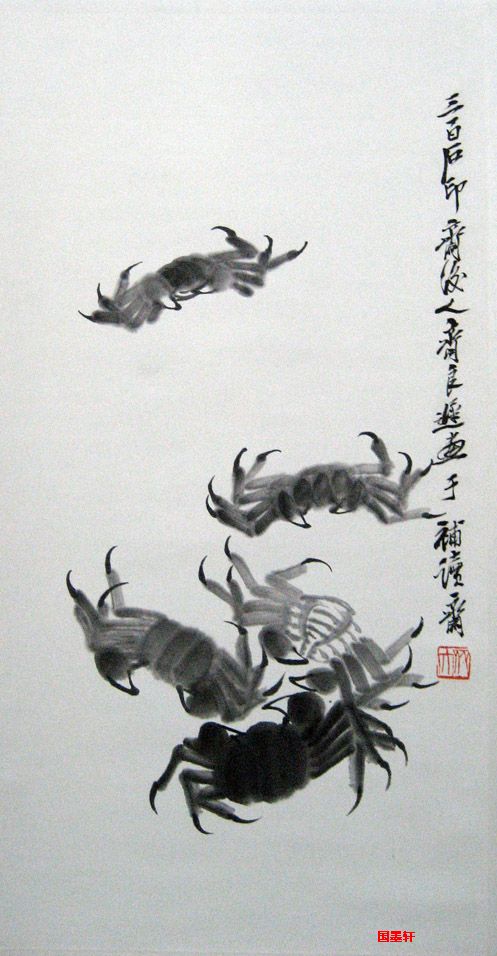 三百石印齋後人齊良遲畫于補讀齋
国墨轩